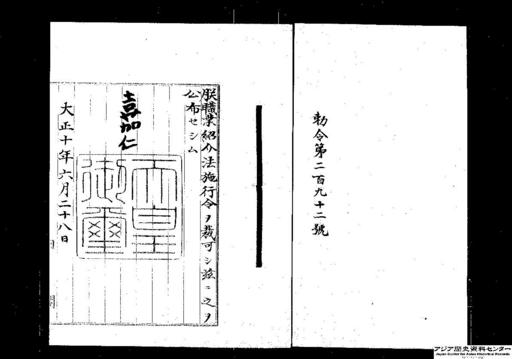 勅令第二百九十二號
朕職業紹介法施行令ヲ裁可シ茲ニ之ヲ
公布セシム
嘉仁
天皇
御璽
大正十年六月二十八日
内閣
アジア歴史資料センター
Japan Center for Asian Historical Records